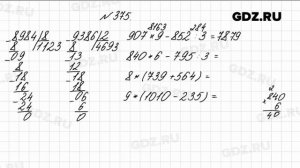 № 375
GDZ.RU
8984 | 8
8 | 1123
09
8
18
16
24
24
0
9386 | 2
8 | 4693
13
12
18
18
06
6
0
8163 284
907 * 9 - 852 : 3 = 7879
840 * 6 - 795 : 3 =
8 * (739 + 564) =
9 * (1010 - 235) =
840
× 6
40
GDZ.RU